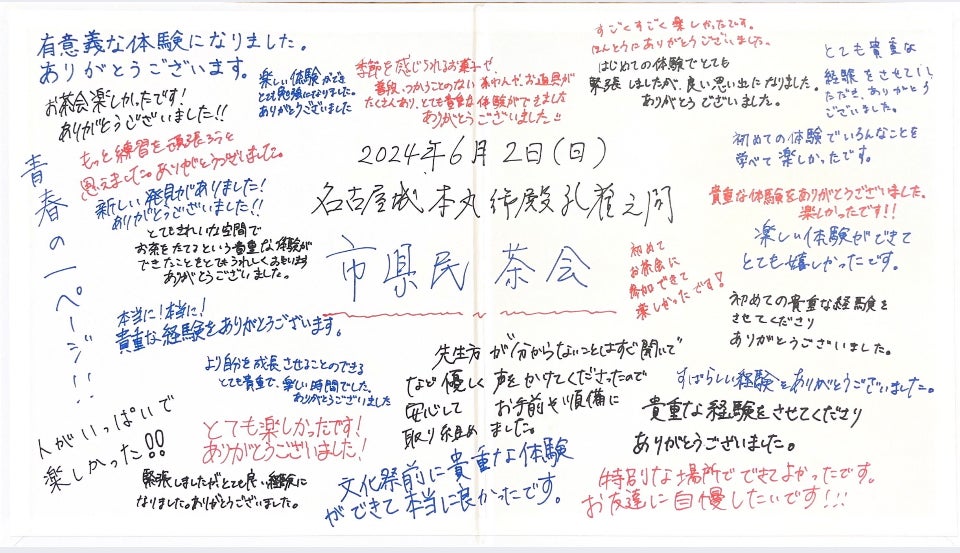 有意義な体験になりました。
ありがとうございます。
お茶会楽しかったです！
ありがとうございました!!
楽しい体験ができ
とても勉強になりました。
ありがとうございました
季節を感じられるお菓子や、
普段、つかうことのない茶わんや、お道具が
たくさんあり、とても貴重な体験ができました
ありがとうございました!!
すごくすごく楽しかったです。
ほんとうにありがとうございました。
はじめての体験でとても
緊張しましたが、良い思い出になりました。
ありがとうございました。
とても貴重な
経験をさせてい
ただき、ありがとう
ございました。
もっと練習を頑張ろうと
思えました。ありがとうございました。
青春の一ページ!!
新しい発見がありました！
ありがとうございました!!
とてもきれいな空間で
お茶をたてるという貴重な体験が
できたことをとてもうれしくおもいます
ありがとうございました。
2024年6月2日(日)
名古屋城本丸御殿孔雀之間
市県民茶会
初めての体験でいろんなことを
学べて楽しかったです。
貴重な体験をありがとうございました。
楽しかったです!!
楽しい体験ができて
とても嬉しかったです。
初めて
お茶会に
参加できて
楽しかったです！
初めての貴重な経験を
させてくださり
ありがとうございました。
本当に！本当に！
貴重な経験をありがとうございます。
より自分を成長させることのできる
とても貴重で、楽しい時間でした。
ありがとうございました
先生方が分からないことはすぐ聞いて
など優しく声をかけてくださったので
安心してお手前や準備に
取り組めました。
すばらしい経験をありがとうございました。
貴重な経験をさせてくださり
ありがとうございました。
人がいっぱいで
楽しかった!!
とても楽しかったです！
ありがとうございました！
緊張しましたがとても良い経験に
なりました。ありがとうございました。
文化祭前に貴重な体験
ができて本当に良かったです。
特別な場所でできてよかったです。
お友達に自慢したいです!!!